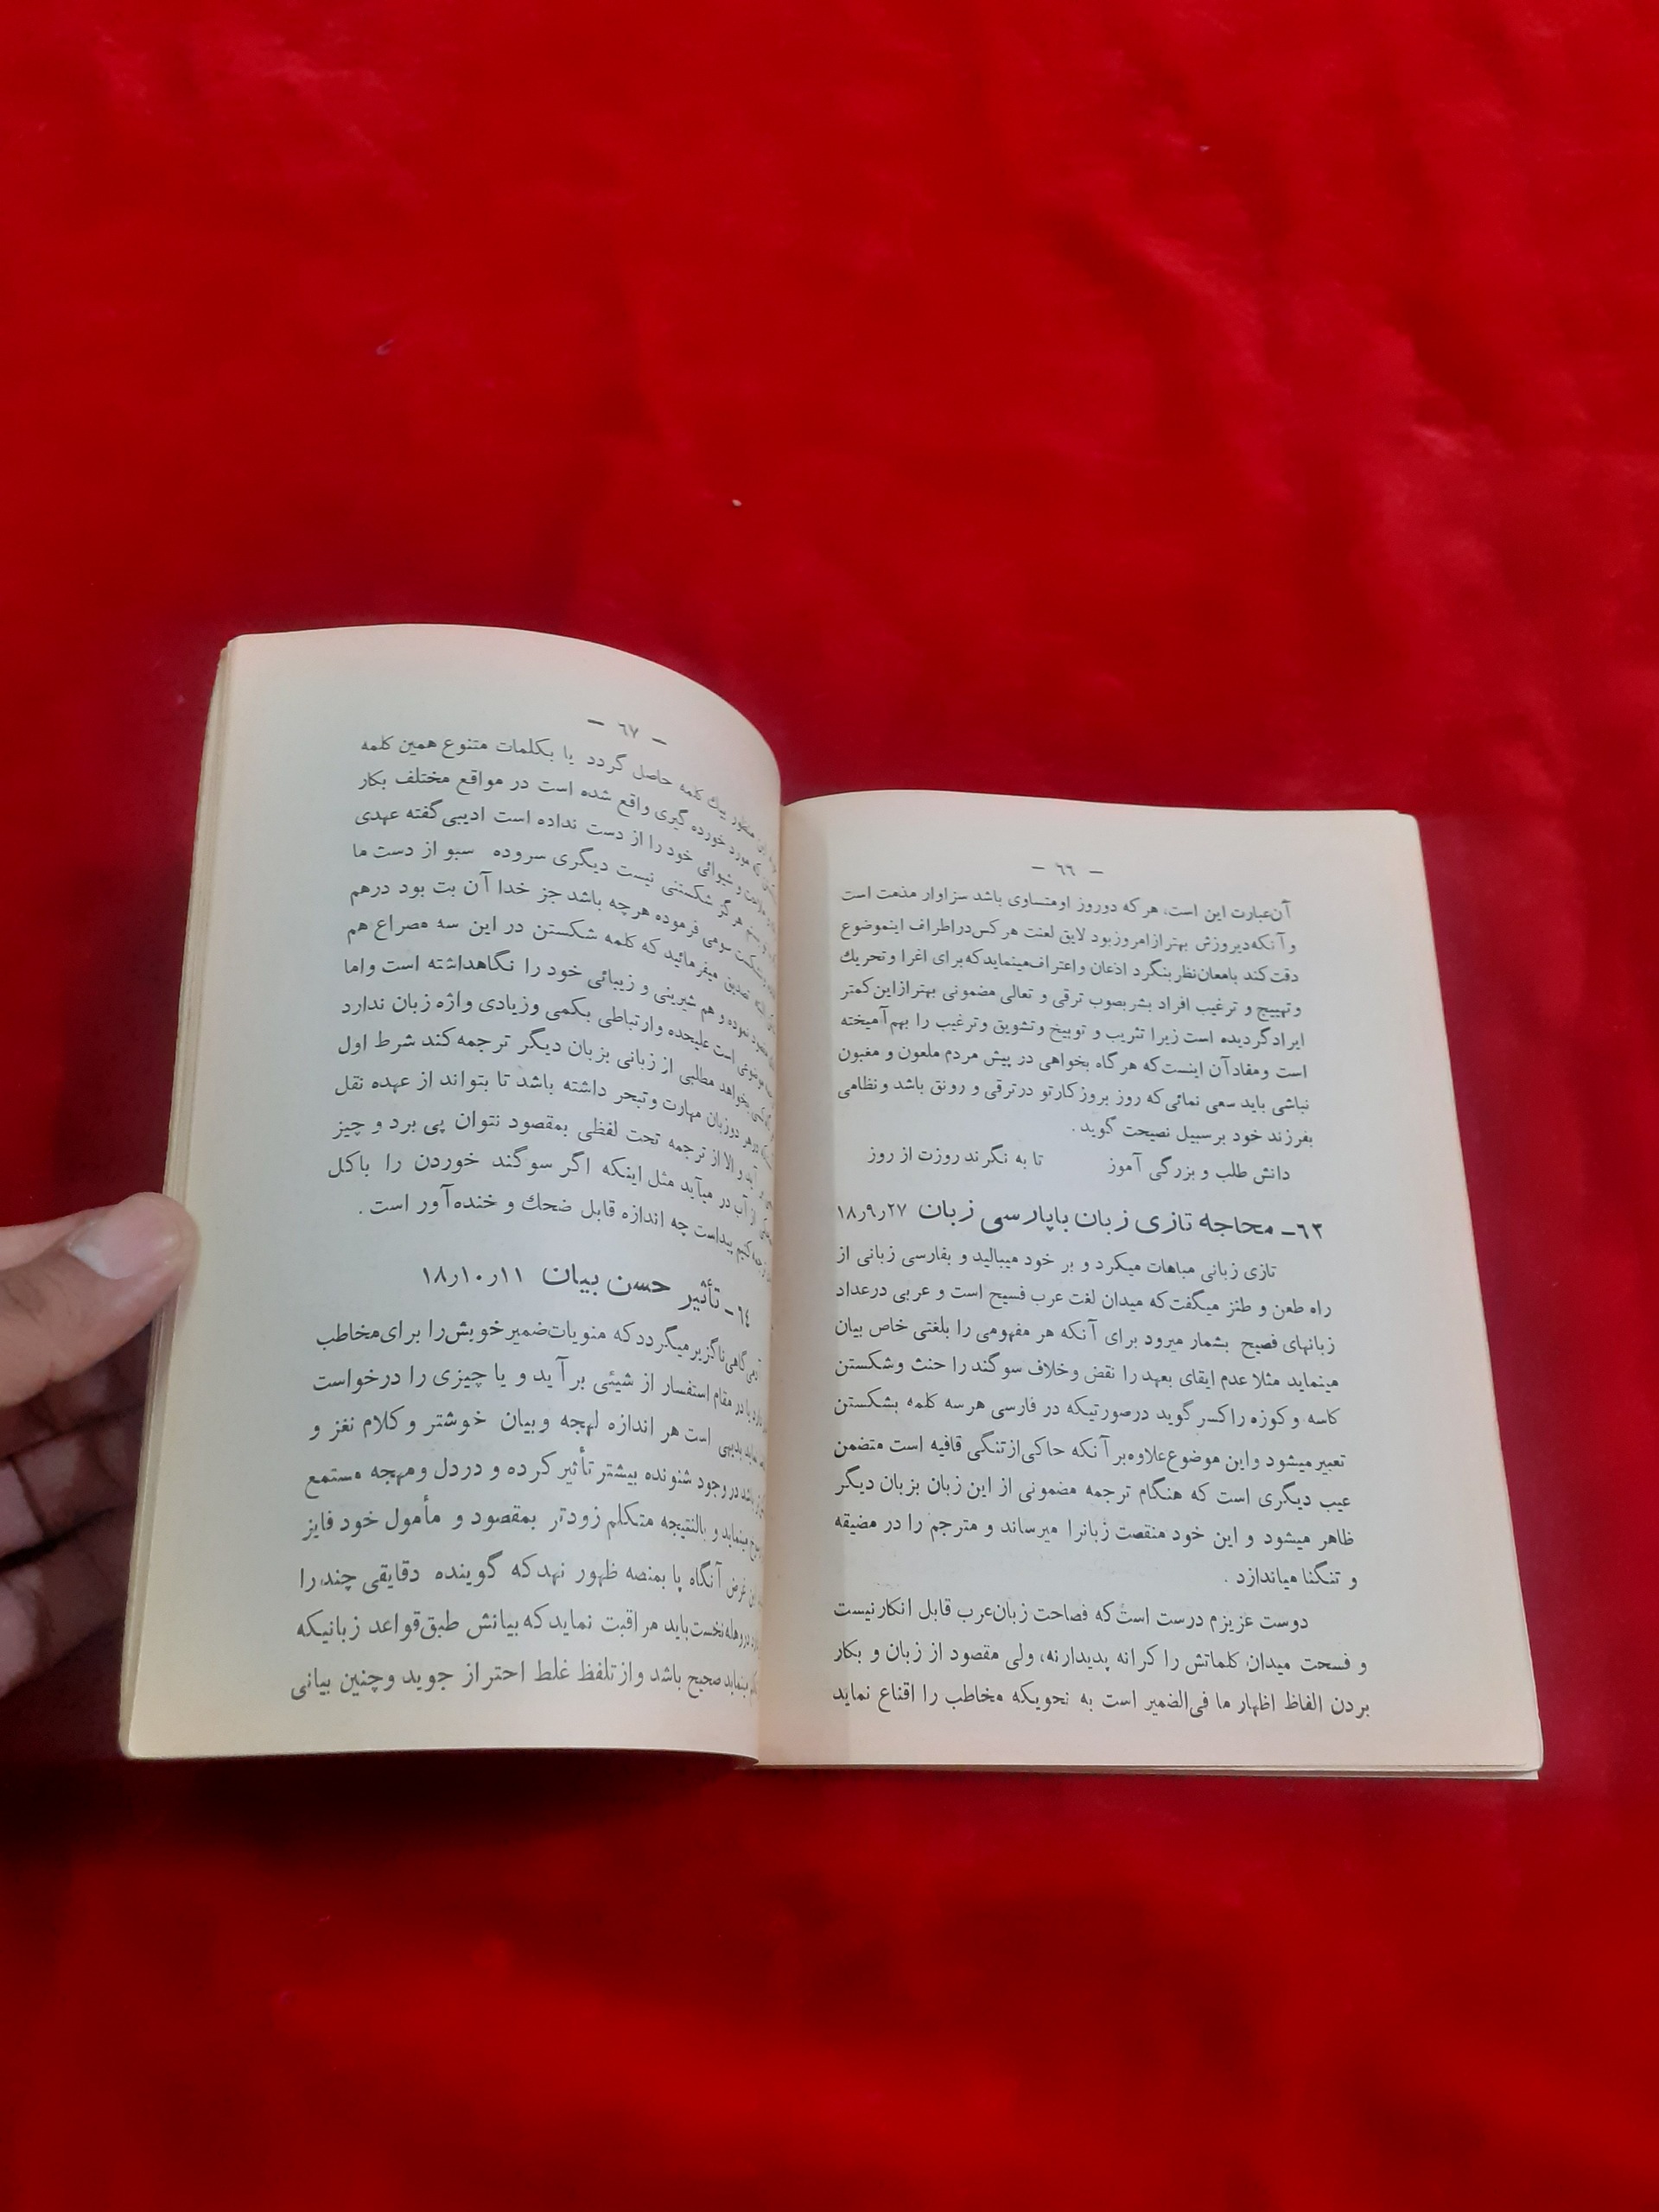 — ٦٦ —
آن‌عبارت این است، هر که دوروز اومتساوی باشد سزاوار مذمت است
و آنکه دیروزش بهتر از امروز بود لایق لعنت هر کس در اطراف اینموضوع
دقت کند بامعان نظر بنگرد اذعان و اعتراف مینماید که برای اغرا و تحریك
و تهییج و ترغیب افراد بشر بصوب ترقی و تعالی مضمونی بهتر از این کمتر
ایراد گردیده است زیرا تثریب و توبیخ و تشویق و ترغیب را بهم آمیخته
است و مفاد آن اینست که هر گاه بخواهی در پیش مردم ملعون و مغبون
نباشی باید سعی نمائی که روز بروز کار تو در ترقی و رونق باشد و نظامی
بفرزند خود بر سبیل نصیحت گوید .
دانش طلب و بزرگی آموز تا به نگرند روزت از روز
٦٣ـ محاجه تازی زبان باپارسی زبان ١٨ر٩ر٢٧
تازی زبانی مباهات میکرد و بر خود میبالید و بفارسی زبانی از
راه طعن و طنز میگفت که میدان لغت عرب فسیح است و عربی در عداد
زبانهای فصیح بشمار میرود برای آنکه هر مفهومی را بلغتی خاص بیان
مینماید مثلا عدم ایقای بعهد را نقض و خلاف سوگند را حنث و شکستن
کاسه و کوزه را کسر گوید در صورتیکه در فارسی هر سه کلمه بشکستن
تعبیر میشود و این موضوع علاوه بر آنکه حاکی از تنگی قافیه است متضمن
عیب دیگری است که هنگام ترجمه مضمونی از این زبان بزبان دیگر
ظاهر میشود و این خود منقصت زبانرا میرساند و مترجم را در مضیقه
و تنگنا میاندازد .
دوست عزیزم درست است که فصاحت زبان عرب قابل انکار نیست
و فسحت میدان کلماتش را کرانه پدیدار نه، ولی مقصود از زبان و بکار
بردن الفاظ اظهار ما فی‌الضمیر است به نحویکه مخاطب را اقناع نماید
— ٦٧ —
منظور بیك کلمه حاصل گردد یا بکلمات متنوع همین کلمه
که مورد خورده گیری واقع شده است در مواقع مختلف بکار
و شیوائی خود را از دست نداده است ادیبی گفته عهدی
هرگز شکستنی نیست دیگری سروده سبو از دست ما
سومی فرموده هر چه باشد جز خدا آن بت بود درهم
تصدیق میفرمائید که کلمه شکستن در این سه مصراع هم
نموده و هم شیرینی و زیبائی خود را نگاهداشته است واما
موضوعی است علیحده و ارتباطی بکمی و زیادی واژه زبان ندارد
بخواهد مطالبی از زبانی بزبان دیگر ترجمه کند شرط اول
در هر دوزبان مهارت و تبحر داشته باشد تا بتواند از عهده نقل
آید و الا از ترجمه تحت لفظی بمقصود نتوان پی برد و چیز
از آب در میآید مثل اینکه اگر سوگند خوردن را باکل
کنیم پیداست چه اندازه قابل ضحك و خنده‌آور است .
٦٤ـ تأثیر حسن بیان ١٨ر١٠ر١١
گاهی ناگزیر میگردد که منویات ضمیر خویش را برای مخاطب
یا در مقام استفسار از شیئی بر آید و یا چیزی را درخواست
نماید بدیهی است هر اندازه لهجه و بیان خوشتر و کلام نغز و
باشد در وجود شنونده بیشتر تأثیر کرده و در دل و مهجه مستمع
مینماید و بالنتیجه متکلم زودتر بمقصود و مأمول خود فایز
غرض آنگاه پا بمنصه ظهور نهد که گوینده دقایقی چند را
در وهله نخست باید مراقبت نماید که بیانش طبق قواعد زبانیکه
مینماید صحیح باشد و از تلفظ غلط احتراز جوید و چنین بیانی